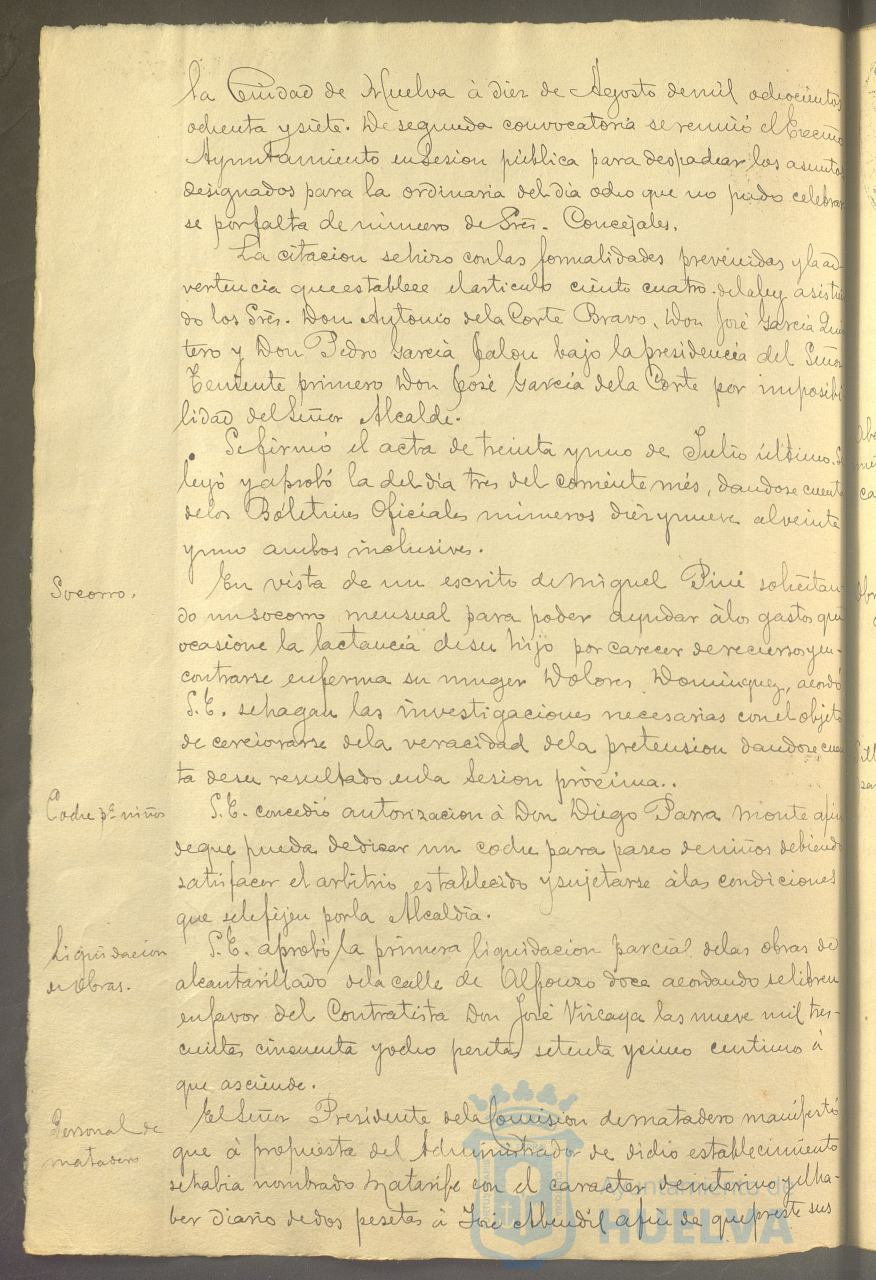 la Ciudad de Huelva à diez de Agosto de mil ochocientos
ochenta y siete. De segunda convocatoria se reunió el Excmo
Ayuntamiento en Sesion pública para despachar los asuntos
designados para la ordinaria del dia ocho que no pudo celebrar
se por falta de número de Sres. Concejales.
La citacion se hizo con las formalidades prevenidas y la ad-
vertencia que establece el articulo ciento cuatro de la ley asistien
do los Sres. Don Antonio de la Corte Bravo, Don José Garcia Quin
tero y Don Pedro Garcia Jalon bajo la presidencia del Señor
Teniente primero Don José Garcia de la Corte por imposibi
lidad del Señor Alcalde.
Se firmó el acta de treinta y uno de Julio último. Se
leyó y aprobó la del dia tres del corriente més, dandose cuenta
de los Boletines Oficiales números diez y nueve al veinte
y uno ambos inclusives.
Socorro.
En vista de un escrito de Miguel Pini solicitan-
do un socorro mensual para poder ayudar à los gastos que
ocasione la lactancia de su hijo por carecer de recursos y en-
contrarse enferma su muger Dolores Dominguez, acordó
S.E. se hagan las investigaciones necesarias con el objeto
de cerciorarse de la veracidad de la pretension dandose cuen
ta de su resultado en la Sesion próxima..
Coche pª niños
S.E. concedió autorizacion à Don Diego Parra Monte a fin
de que pueda dedicar un coche para paseo de niños debiendo
satisfacer el arbitrio establecido y sujetarse à las condiciones
que se le fijen por la Alcaldia.
Liquidacion
de obras.
S.E. aprobó la primera liquidacion parcial de las obras de
alcantarillado de la calle de Alfonzo doce acordando se libren
en favor del Contratista Don José Vizcaya las nueve mil tres-
cientas cincuenta y ocho pesetas setenta y cinco centimos à
que asciende.
Personal de
matadero
El Señor Presidente de la Comision de matadero manifestó
que à propuesta del Administrador de dicho establecimiento
se habia nombrado Matarife con el caracter de interino y el ha-
ber diario de dos pesetas à José Abendil a fin de que preste sus
Ayuntamiento de
HUELVA